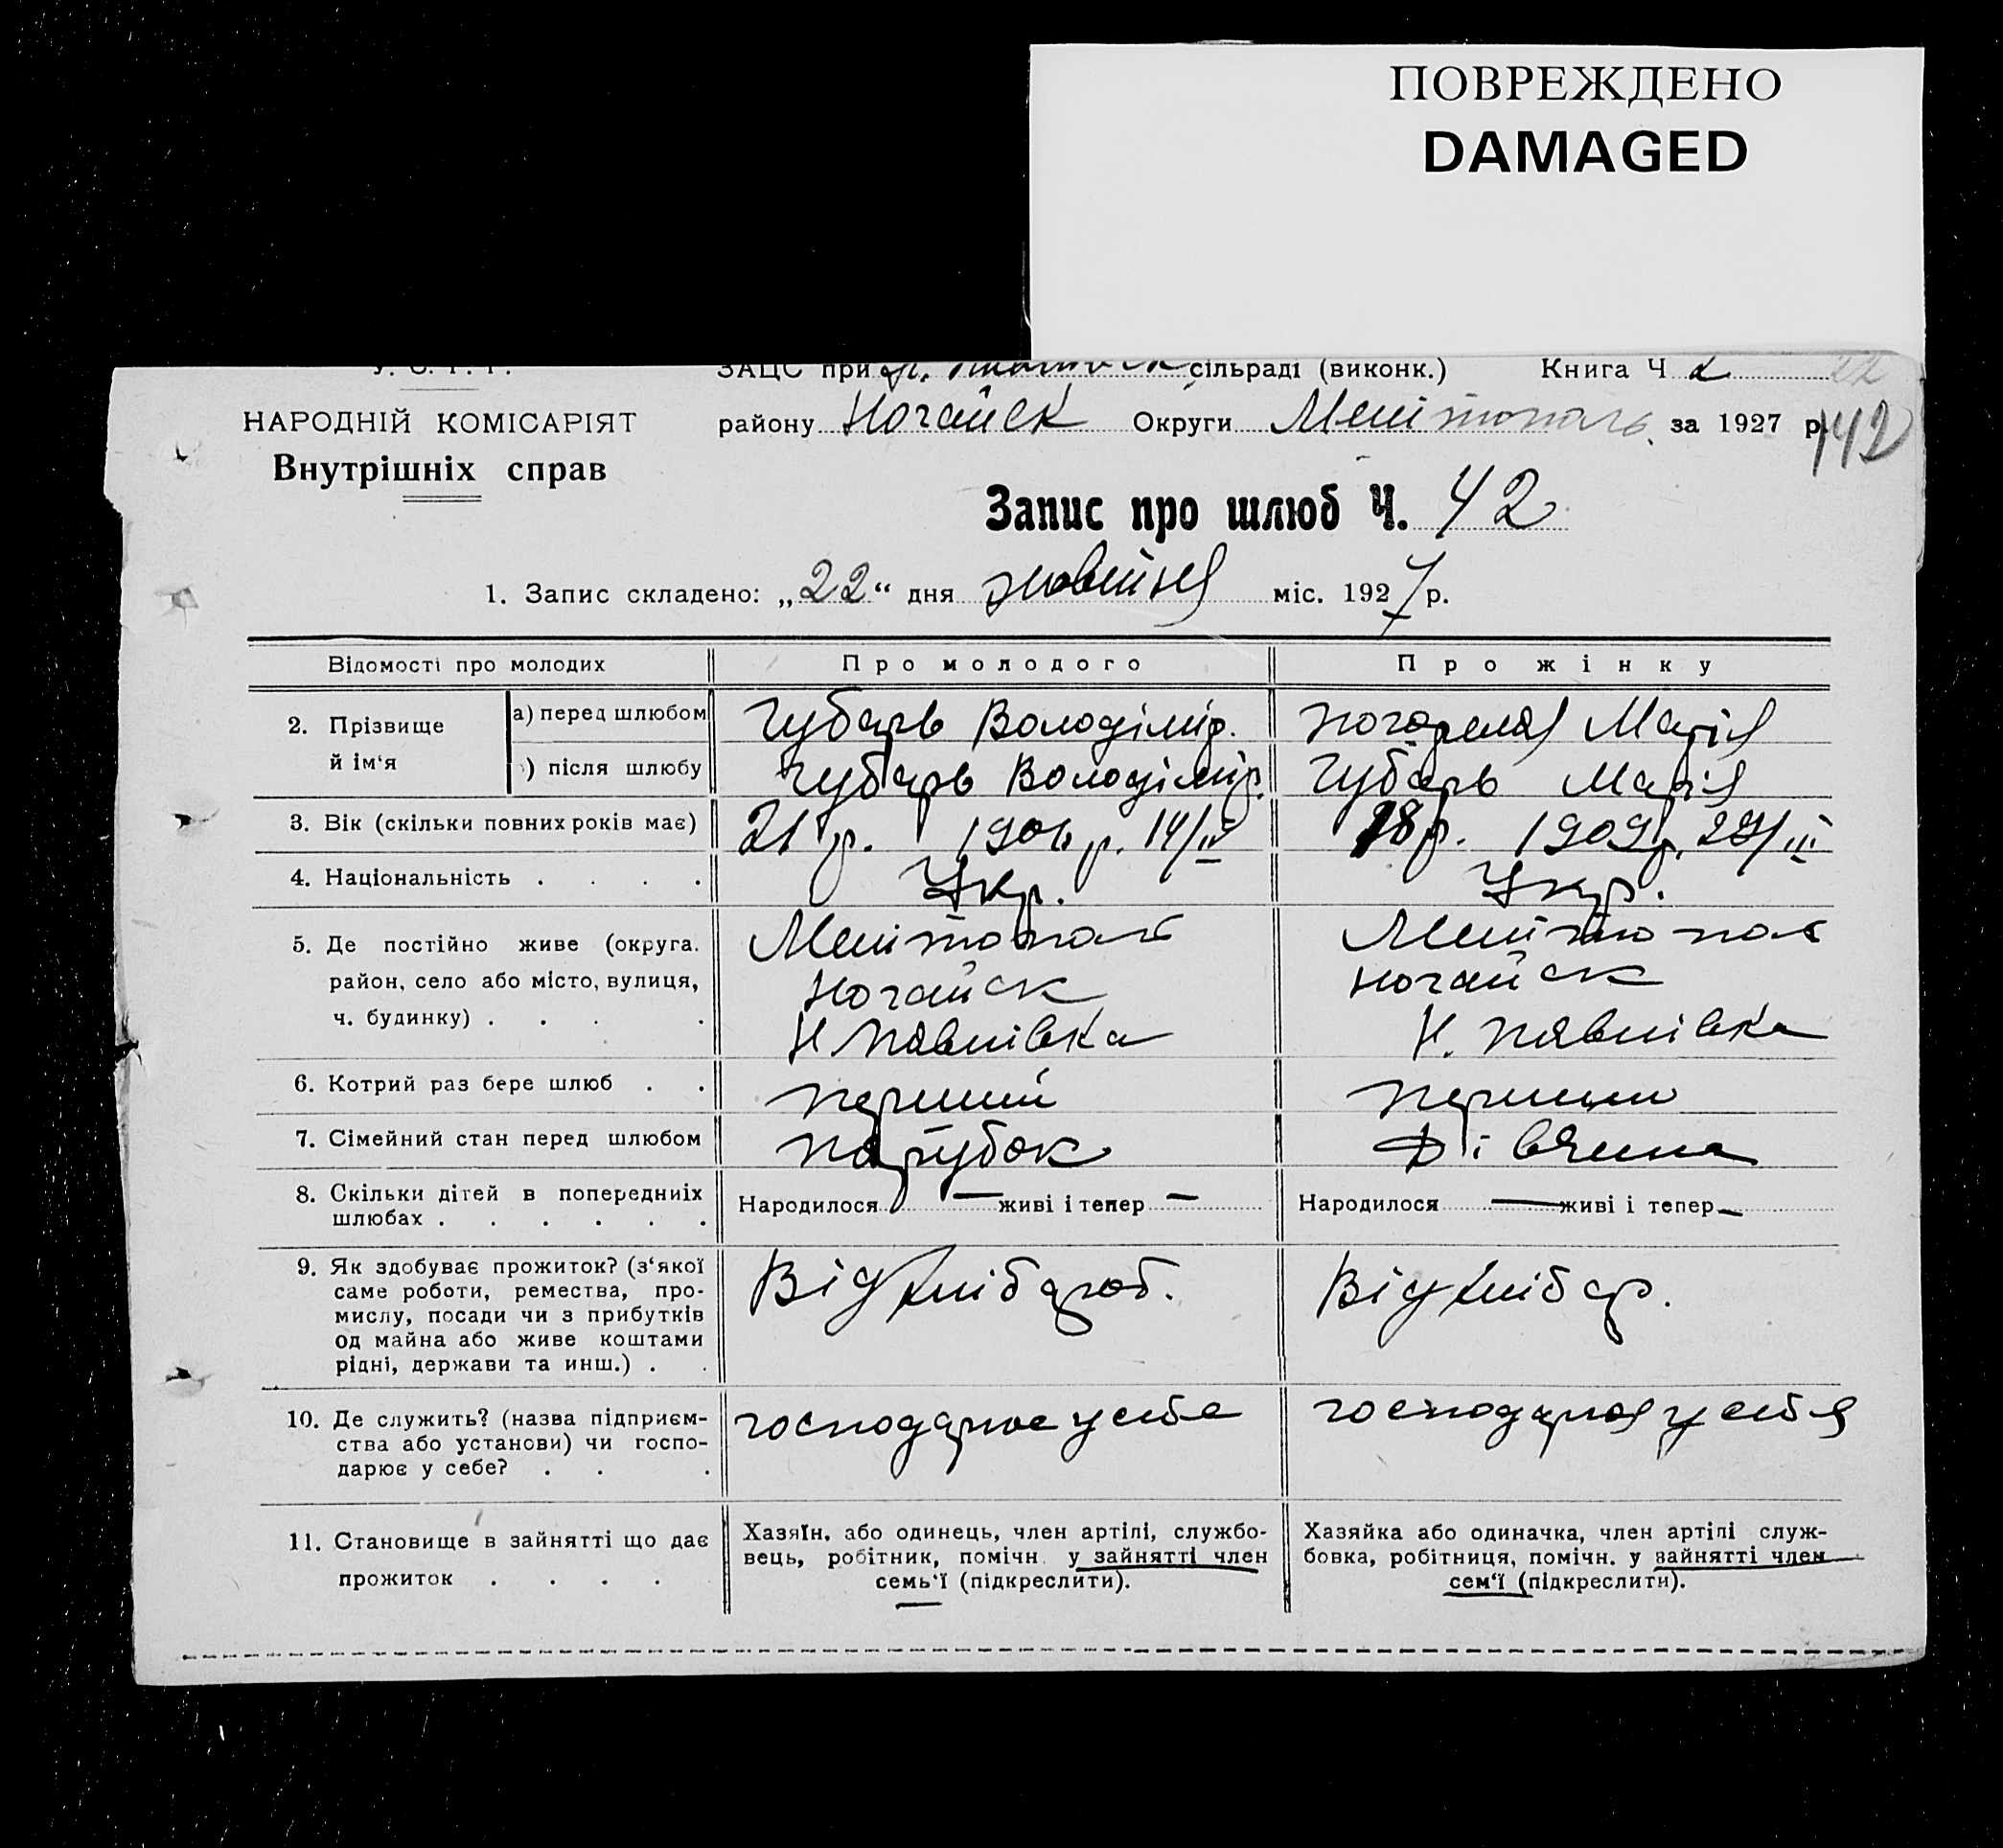 ПОВРЕЖДЕНО
DAMAGED
У. С. Р. Р.
ЗАЦС при сільраді (виконк.) Книга Ч 2 22
НАРОДНІЙ КОМІСАРІЯТ
району Ногайск Округи Мелітополь за 1927 р. 142
Внутрішніх справ
Запис про шлюб Ч. 42
1. Запис складено: „22“ дня жовтня міс. 1927 р.
Відомості про молодих Про молодого Про жінку
2. Прізвище й ім‘я
а) перед шлюбом Губарь Володімір. Погорелая Марія
) після шлюбу Губарь Володімір. Губарь Марія
3. Вік (скільки повних років має) 21 р. 1906 р. 14/IV 18 р. 1909 р. 29/III
4. Національність . . . . Укр. Укр.
5. Де постійно живе (округа. Мелітополь Мелітопол
район, село або місто, вулиця, Ногайск Ногайск
ч. будинку) . . . . Н Павлівка Н. Павлівка
6. Котрий раз бере шлюб . . перший перший
7. Сімейний стан перед шлюбом парубок Дівчина
8. Скільки дітей в попередниіх Народилося — живі і тепер — Народилося — живі і тепер —
шлюбах . . . . . .
9. Як здобуває прожиток? (з‘якої Від хлібароб. Від хлібар.
саме роботи, ремества, про-
мислу, посади чи з прибутків
од майна або живе коштами
рідні, держави та инш.) . .
10. Де служить? (назва підприєм- господарює у себе господарюя у себя
ства або установи) чи госпо-
дарює у себе? . . .
11. Становище в зайнятті що дає
прожиток . . . .
Хазяїн, або одинець, член артілі, службо-
вець, робітник, помічн. у зайнятті член
семь‘ї (підкреслити).
Хазяйка або одиначка, член артілі служ-
бовка, робітниця, помічн. у зайнятті член
сем‘ї (підкреслити).